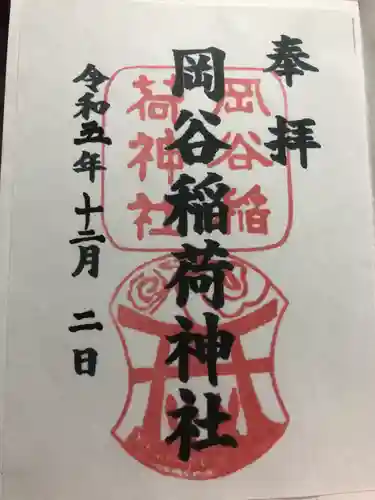 奉拝
岡谷稲荷神社
岡谷稲
荷神社
令和五年十二月二日